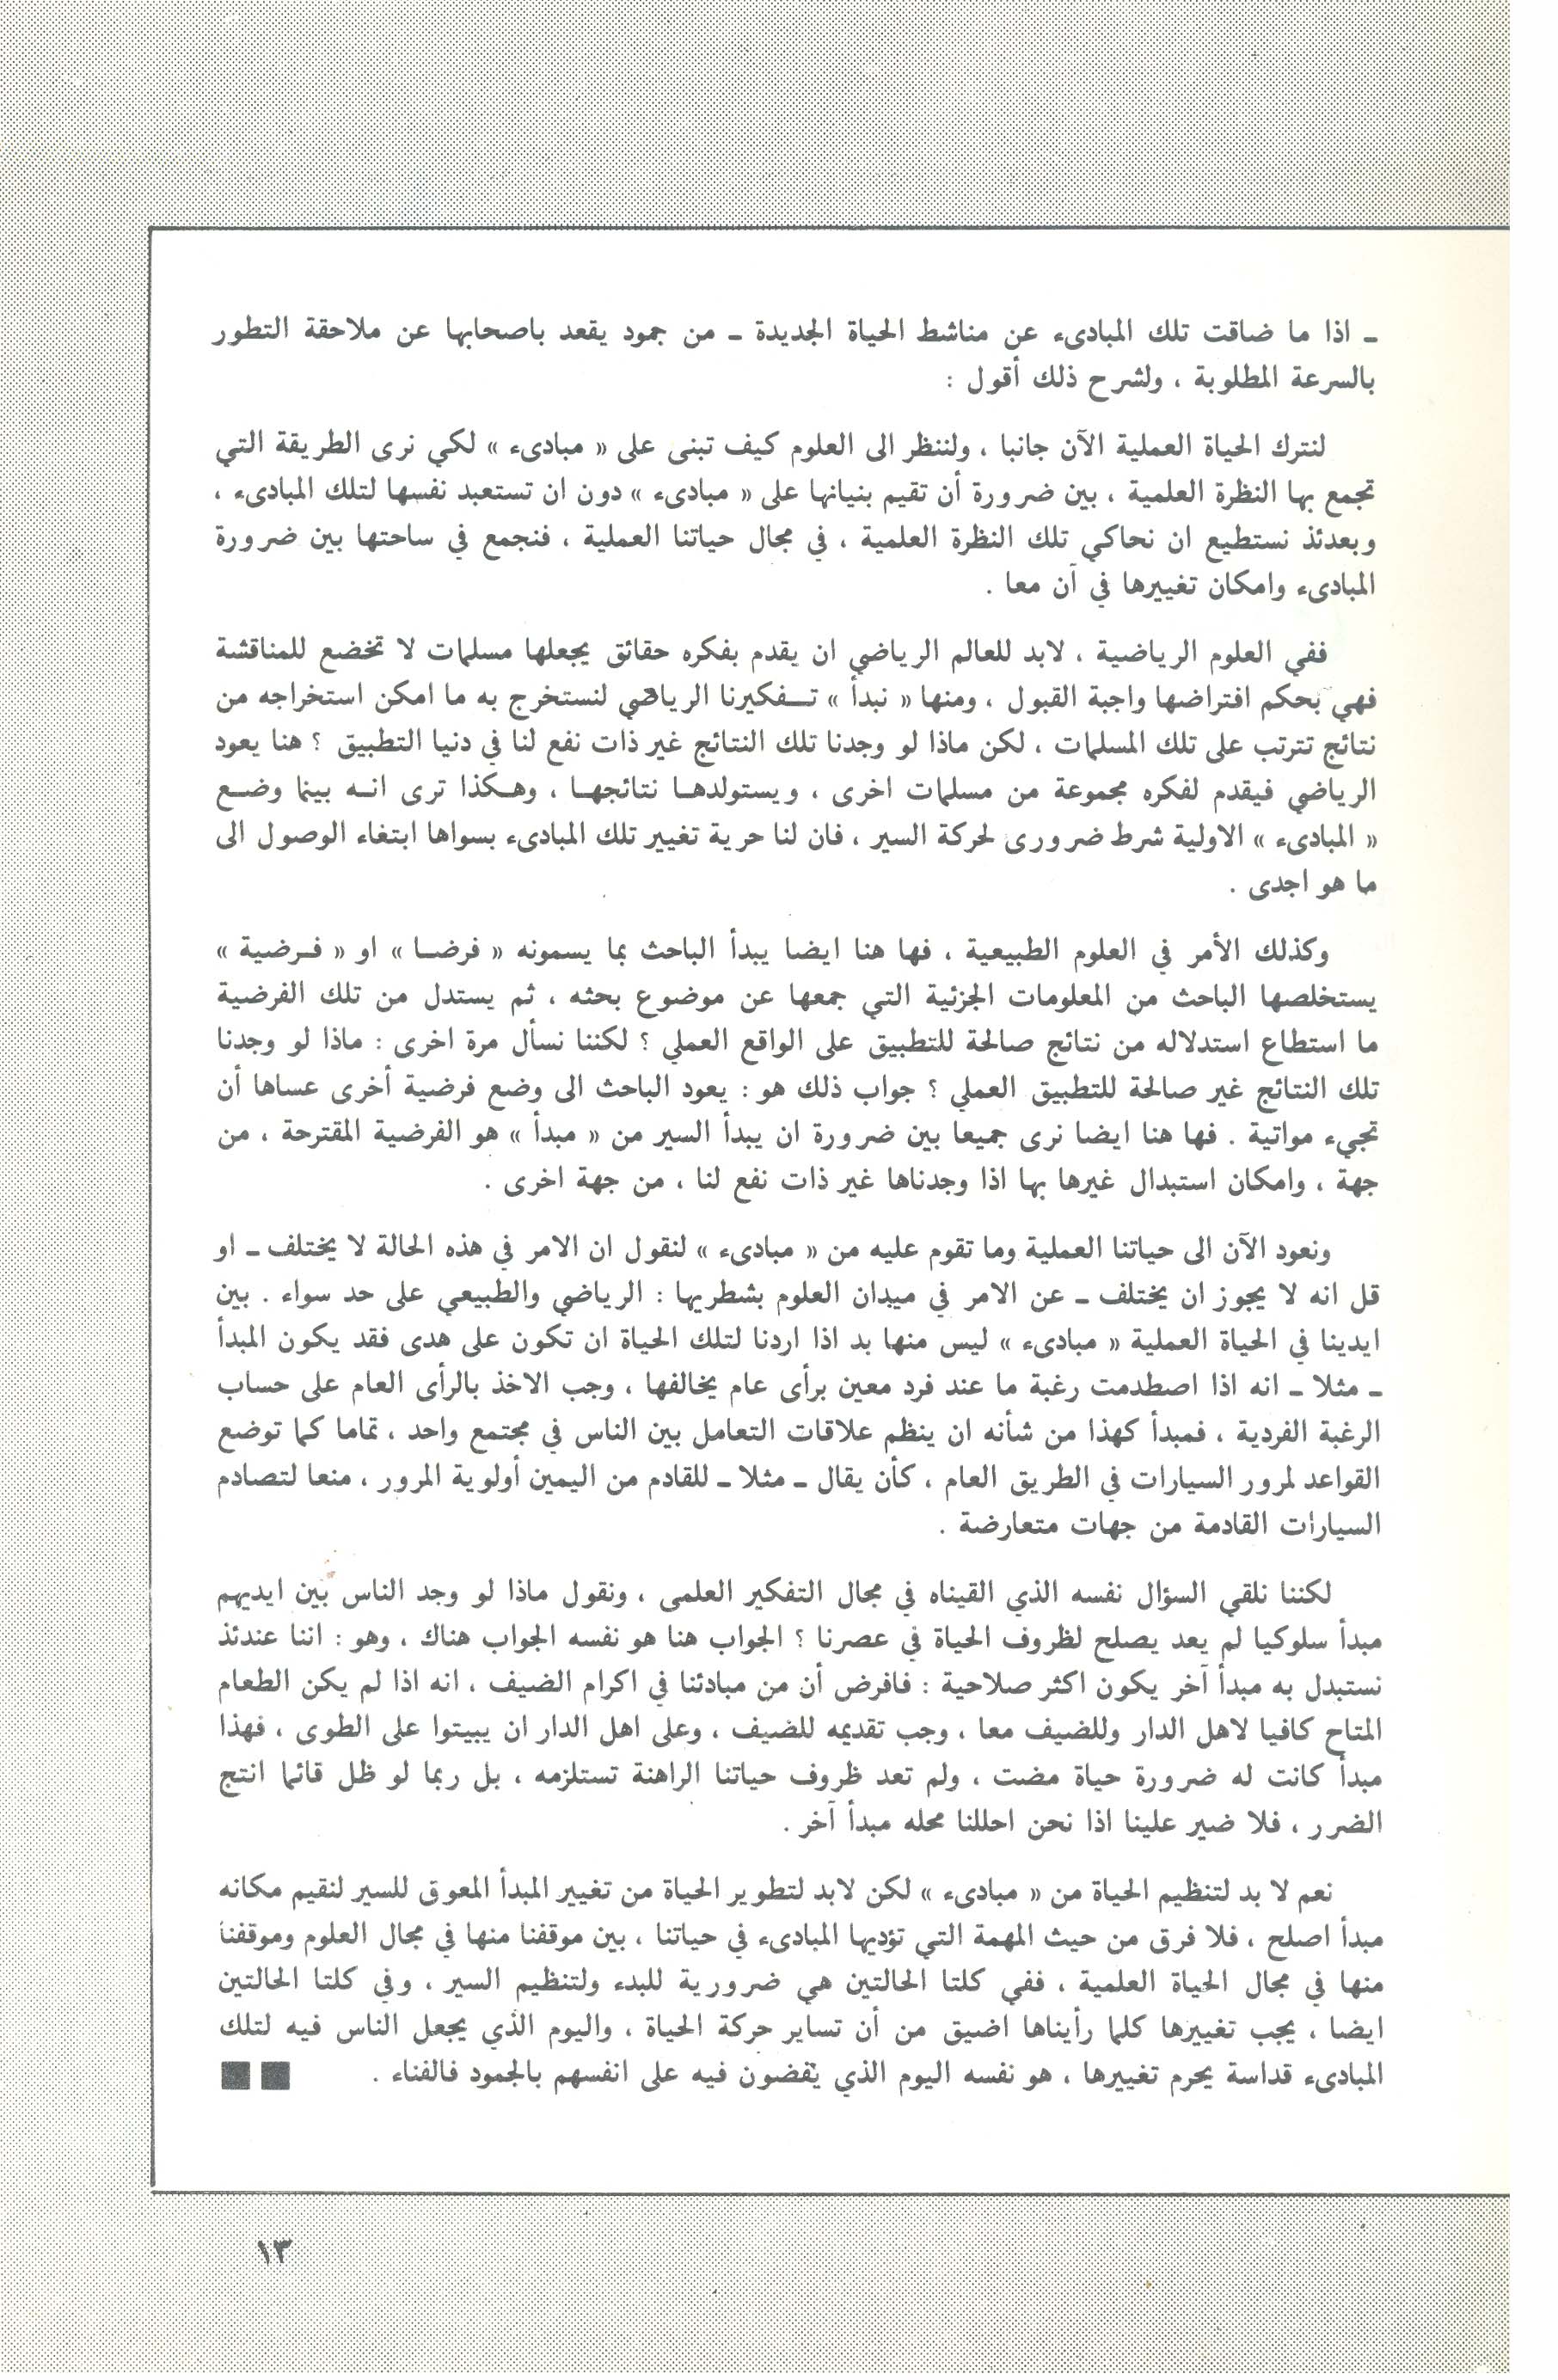 ـ اذا ما ضاقت تلك المبادىء عن مناشط الحياة الجديدة ـ من جمود يقعد باصحابها عن ملاحقة التطور
بالسرعة المطلوبة ، ولشرح ذلك أقول :
لنترك الحياة العملية الآن جانبا ، ولننظر الى العلوم كيف تبنى على « مبادىء » لكي نرى الطريقة التي
تجمع بها النظرة العلمية ، بين ضرورة أن تقيم بنيانها على « مبادىء » دون ان تستعبد نفسها لتلك المبادىء ،
وبعدئذ نستطيع ان نحاكي تلك النظرة العلمية ، في مجال حياتنا العملية ، فنجمع في ساحتها بين ضرورة
المبادىء وامكان تغييرها في آن معا .
ففي العلوم الرياضية ، لابد للعالم الرياضي ان يقدم بفكره حقائق يجعلها مسلمات لا تخضع للمناقشة
فهي بحكم افتراضها واجبة القبول ، ومنها « نبدأ » تـفكيرنا الرياضي لنستخرج به ما امكن استخراجه من
نتائج تترتب على تلك المسلمات ، لكن ماذا لو وجدنا تلك النتائج غير ذات نفع لنا في دنيا التطبيق ؟ هنا يعود
الرياضي فيقدم لفكره مجموعة من مسلمات اخرى ، ويستولدهـا نتائجهـا ، وهـكذا ترى انـه بينما وضـع
« المبادىء » الاولية شرط ضرورى لحركة السير ، فان لنا حرية تغيير تلك المبادىء بسواها ابتغاء الوصول الى
ما هو اجدى .
وكذلك الأمر في العلوم الطبيعية ، فها هنا ايضا يبدأ الباحث بما يسمونه « فرضـا » او « فـرضية »
يستخلصها الباحث من المعلومات الجزئية التي جمعها عن موضوع بحثه ، ثم يستدل من تلك الفرضية
ما استطاع استدلاله من نتائج صالحة للتطبيق على الواقع العملي ؟ لكننا نسأل مرة اخرى : ماذا لو وجدنا
تلك النتائج غير صالحة للتطبيق العملي ؟ جواب ذلك هو : يعود الباحث الى وضع فرضية أخرى عساها أن
تجيء مواتية . فها هنا ايضا نرى جميعا بين ضرورة ان يبدأ السير من « مبدأ » هو الفرضية المقترحة ، من
جهة ، وامكان استبدال غيرها بها اذا وجدناها غير ذات نفع لنا ، من جهة اخرى .
ونعود الآن الى حياتنا العملية وما تقوم عليه من « مبادىء » لنقول ان الامر في هذه الحالة لا يختلف ـ او
قل انه لا يجوز ان يختلف ـ عن الامر في ميدان العلوم بشطريها : الرياضي والطبيعي على حد سواء . بين
ايدينا في الحياة العملية « مبادىء » ليس منها بد اذا اردنا لتلك الحياة ان تكون على هدى فقد يكون المبدأ
ـ مثلا ـ انه اذا اصطدمت رغبة ما عند فرد معين برأى عام يخالفها ، وجب الاخذ بالرأى العام على حساب
الرغبة الفردية ، فمبدأ كهذا من شأنه ان ينظم علاقات التعامل بين الناس في مجتمع واحد ، تماما كما توضع
القواعد لمرور السيارات في الطريق العام ، كأن يقال ـ مثلا ـ للقادم من اليمين أولوية المرور ، منعا لتصادم
السيارات القادمة من جهات متعارضة .
لكننا نلقي السؤال نفسه الذي القيناه في مجال التفكير العلمى ، ونقول ماذا لو وجد الناس بين ايديهم
مبدأ سلوكيا لم يعد يصلح لظروف الحياة في عصرنا ؟ الجواب هنا هو نفسه الجواب هناك ، وهو : اننا عندئذ
نستبدل به مبدأ آخر يكون اكثر صلاحية : فافرض أن من مبادئنا في اكرام الضيف ، انه اذا لم يكن الطعام
المتاح كافيا لاهل الدار وللضيف معا ، وجب تقديمه للضيف ، وعلى اهل الدار ان يبيتوا على الطوى ، فهذا
مبدأ كانت له ضرورة حياة مضت ، ولم تعد ظروف حياتنا الراهنة تستلزمه ، بل ربما لو ظل قائما انتج
الضرر ، فلا ضير علينا اذا نحن احللنا محله مبدأ آخر .
نعم لا بد لتنظيم الحياة من « مبادىء » لكن لابد لتطوير الحياة من تغيير المبدأ المعوق للسير لنقيم مكانه
مبدأ اصلح ، فلا فرق من حيث المهمة التي تؤديها المبادىء في حياتنا ، بين موقفنا منها في مجال العلوم وموقفنا
منها في مجال الحياة العلمية ، ففي كلتا الحالتين هي ضرورية للبدء ولتنظيم السير ، وفي كلتا الحالتين
ايضا ، يجب تغييرها كلما رأيناها اضيق من أن تساير حركة الحياة ، واليوم الذي يجعل الناس فيه لتلك
المبادىء قداسة يحرم تغييرها ، هو نفسه اليوم الذي يقضون فيه على انفسهم بالجمود فالفناء .
١٣